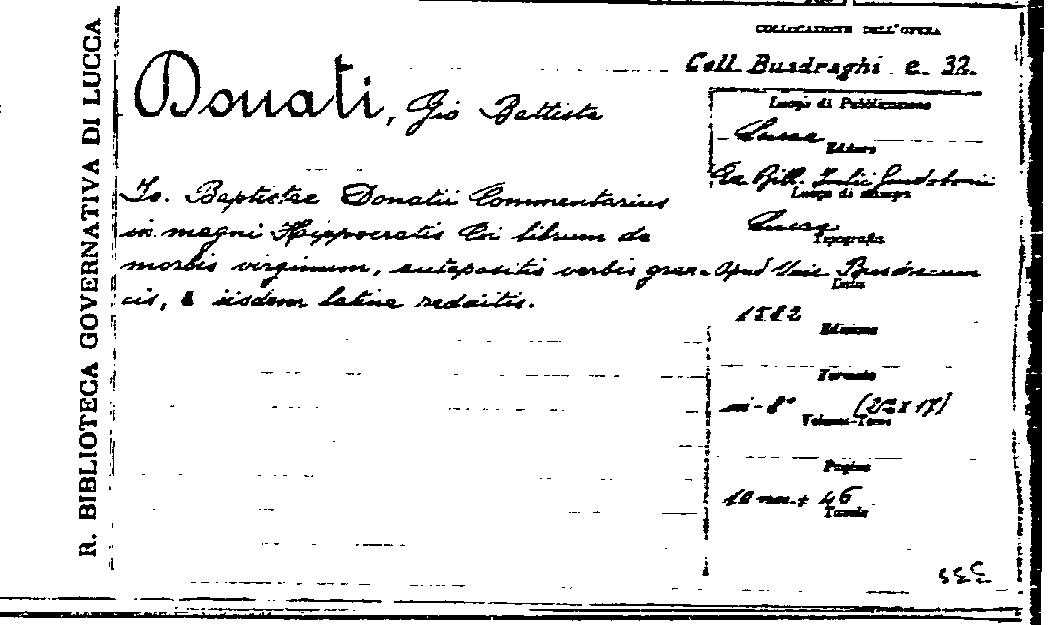 R. BIBLIOTECA GOVERNATIVA DI LUCCA
Donati, Gio Battista
Io. Baptistae Donatii Commentarius
in magni Hippocratis Coi librum de
morbis virginum, antepositis verbis grae-
cis, & iisdem latine redditis.
COLLOCAZIONE DELL'OPERA
Coll. Busdraghi e. 32.
Luogo di Pubblicazione
Lucca
Editore
Ex Bibl. Iulii Guidoboni
Luogo di stampa
Lucca
Tipografia
Apud Vinc. Busdracum
Data
1582
Edizione
Formato
in-8° (22x17)
Volume-Tomo
Pagine
10 nn. + 46
Tavole